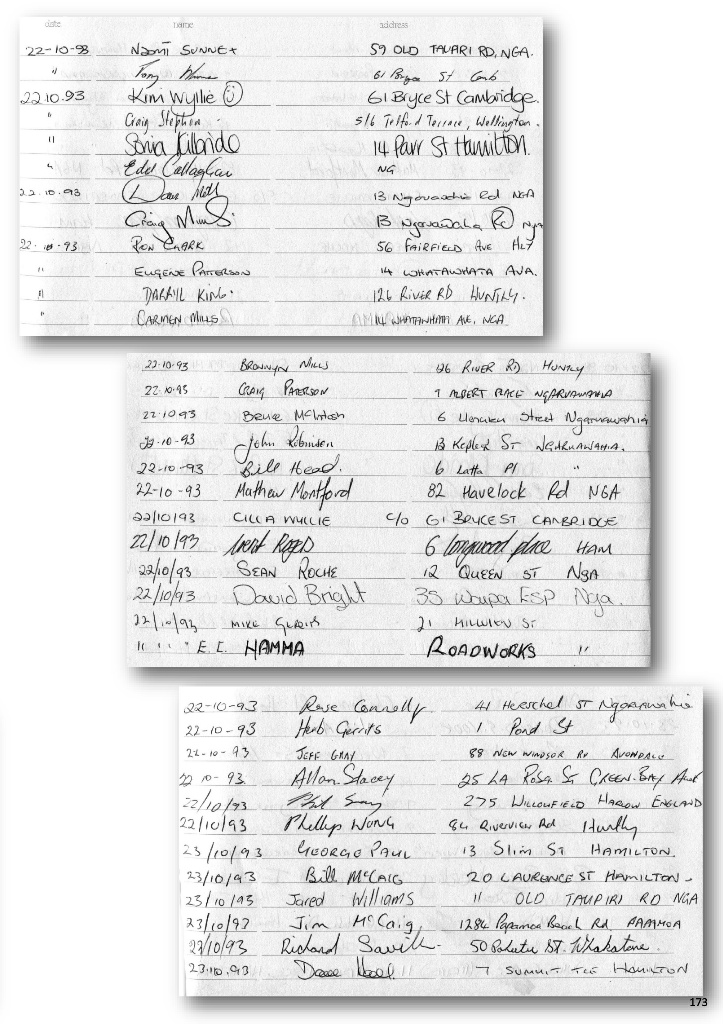 date name address
22-10-93 Naomi SUNNEX 59 OLD TAUARI RD, NGA.
" Tony 61 Bryce St Camb
22.10.93 Kim Wyllie 61 Bryce St Cambridge.
" Craig Stephen 5/6 Telford Terrace, Wellington.
" Sonia Kilbride 14 Parr St Hamilton.
" Edel Callaghan NG
22.10.93 13 Ngaruawahia Rd NGA
Craig Mills 13 Ngaruawahia Rd Nga
22-10-93 RON CLARK 56 FAIRFIELD AVE HLY
" EUGENE PATERSON 14 WHATAWHATA AVA.
" DARRYL KING. 126 RIVER RD HUNTLY.
" CARMEN MILLS 14 WHATAWHATA AVE, NGA
22.10.93 BRONWYN MILLS 126 RIVER RD HUNTLY
22.10.93 CRAIG PATERSON 7 ALBERT PLACE NGARUAWAHIA
22.10.93 Bruce McIntosh 6 Street Ngaruawahia
22-10-93 John Robinson 13 ST NGARUAWAHIA.
22-10-93 Bill Head. 6 Latta Pl "
22-10-93 Mathew Montford 82 Havelock Rd NGA
22/10/93 CILLA WYLLIE C/O 61 BRYCE ST CAMBRIDGE
22/10/93 Brent Rogers 6 longwood place HAM
22/10/93 SEAN ROCHE 12 QUEEN ST NGA
22/10/93 David Bright 35 Waipa ESP Nga.
22/10/93 MIKE 21 ST
" " " E. C. HAMMA ROADWORKS "
22-10-93 Rose Connolly. 41 Herschel ST Ngaruawahia
22-10-93 Herb Gerrits 1 Pond St
22-10-93 JEFF GRAY 88 NEW WINDSOR RD AVONDALE
22-10-93. Allan Stacey 25 LA ROSA ST GREEN BAY Auck
22/10/93 Phil 275 WILLOWFIELD HARLOW ENGLAND
22/10/93 Phillip WONG 84 Riverview Rd Huntly
23/10/93 GEORGE PAUL 13 Slim St HAMILTON.
23/10/93 Bill McCAIG 20 LAURENCE ST HAMILTON -
23/10/93 Jared WILLIAMS 11 OLD TAUPIRI RD NGA
23/10/93 Jim McCaig 1284 Papamoa Beach Rd, PAPAMOA
23/10/93 Richard Savill. 50 ST. Whakatane.
23.10.93 7 SUMMIT TCE HAMILTON
173